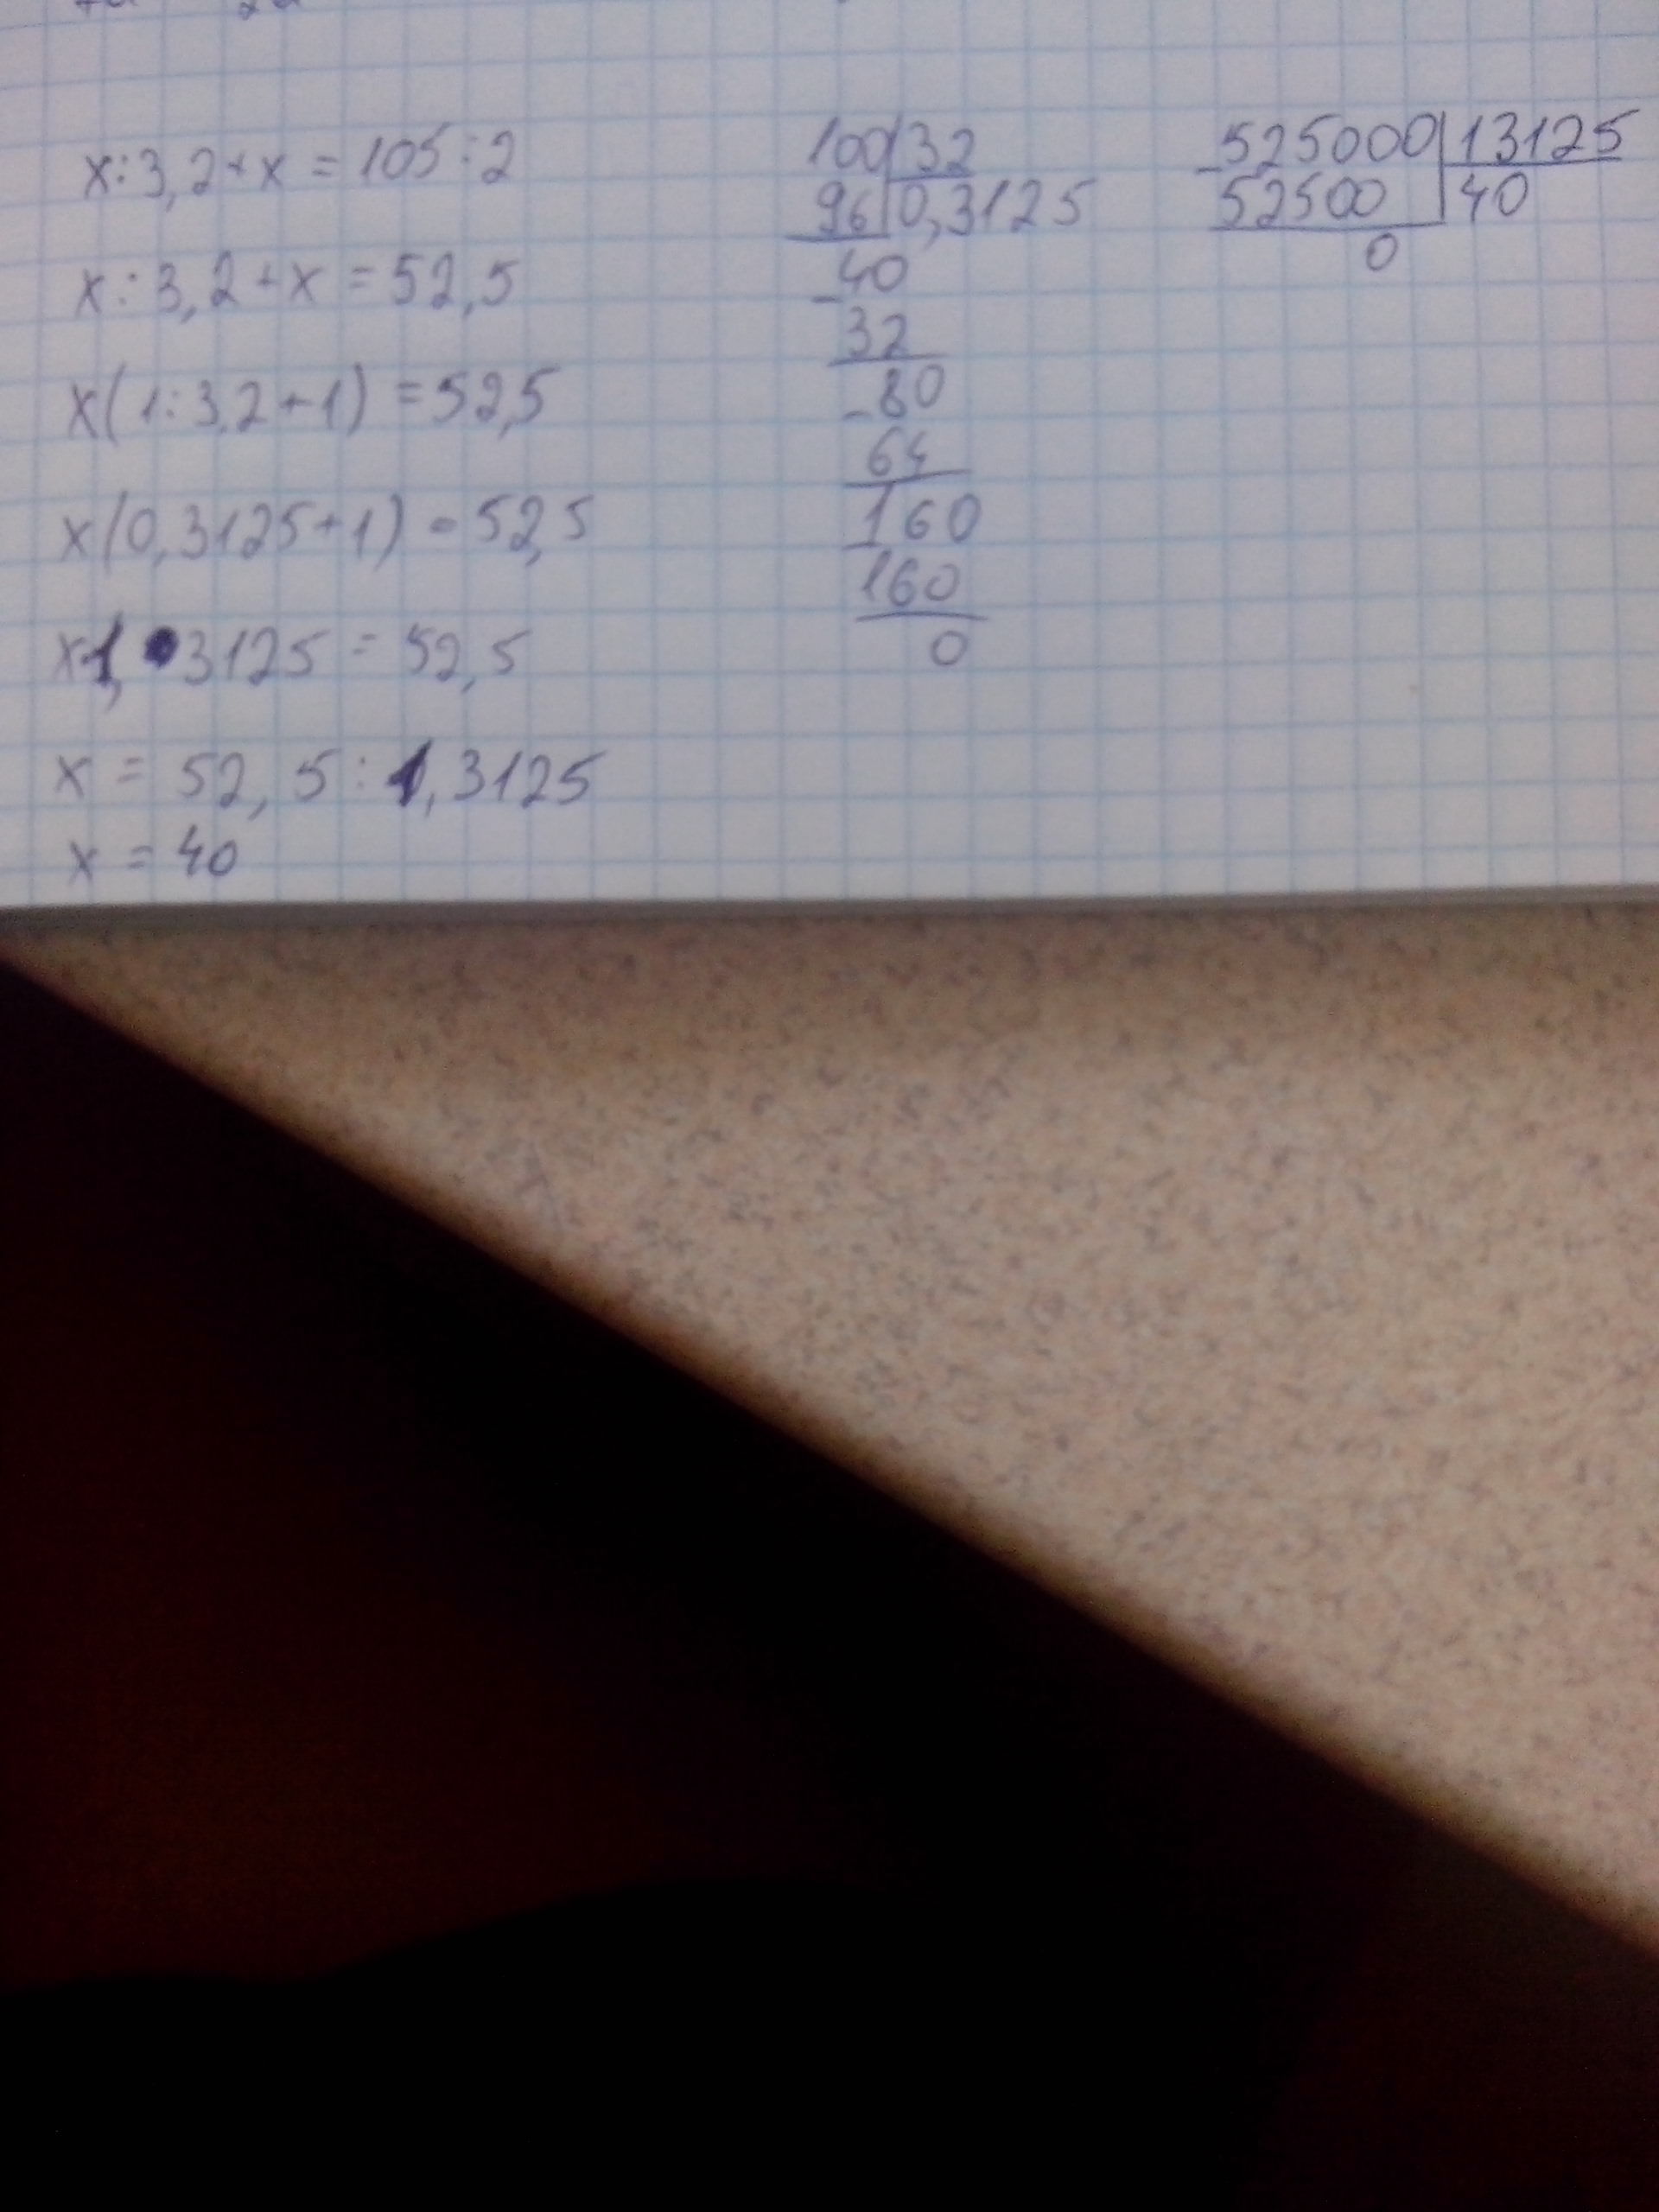 x:3,2+x=105:2
x:3,2+x=52,5
x(1:3,2+1)=52,5
x(0,3125+1)=52,5
x1,3125=52,5
x=52,5:1,3125
x=40
100|32
96|0,3125
-40
32
-80
64
-160
160
0
-525000|13125
52500|40
0